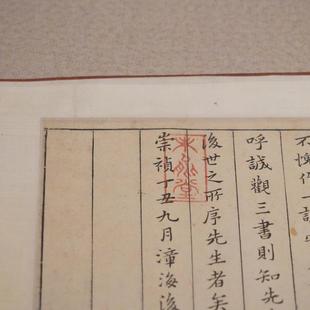 不愧作一詩
呼誠觀三書則知先
後世之所序先生者矣
崇禎丁丑九月漳海後